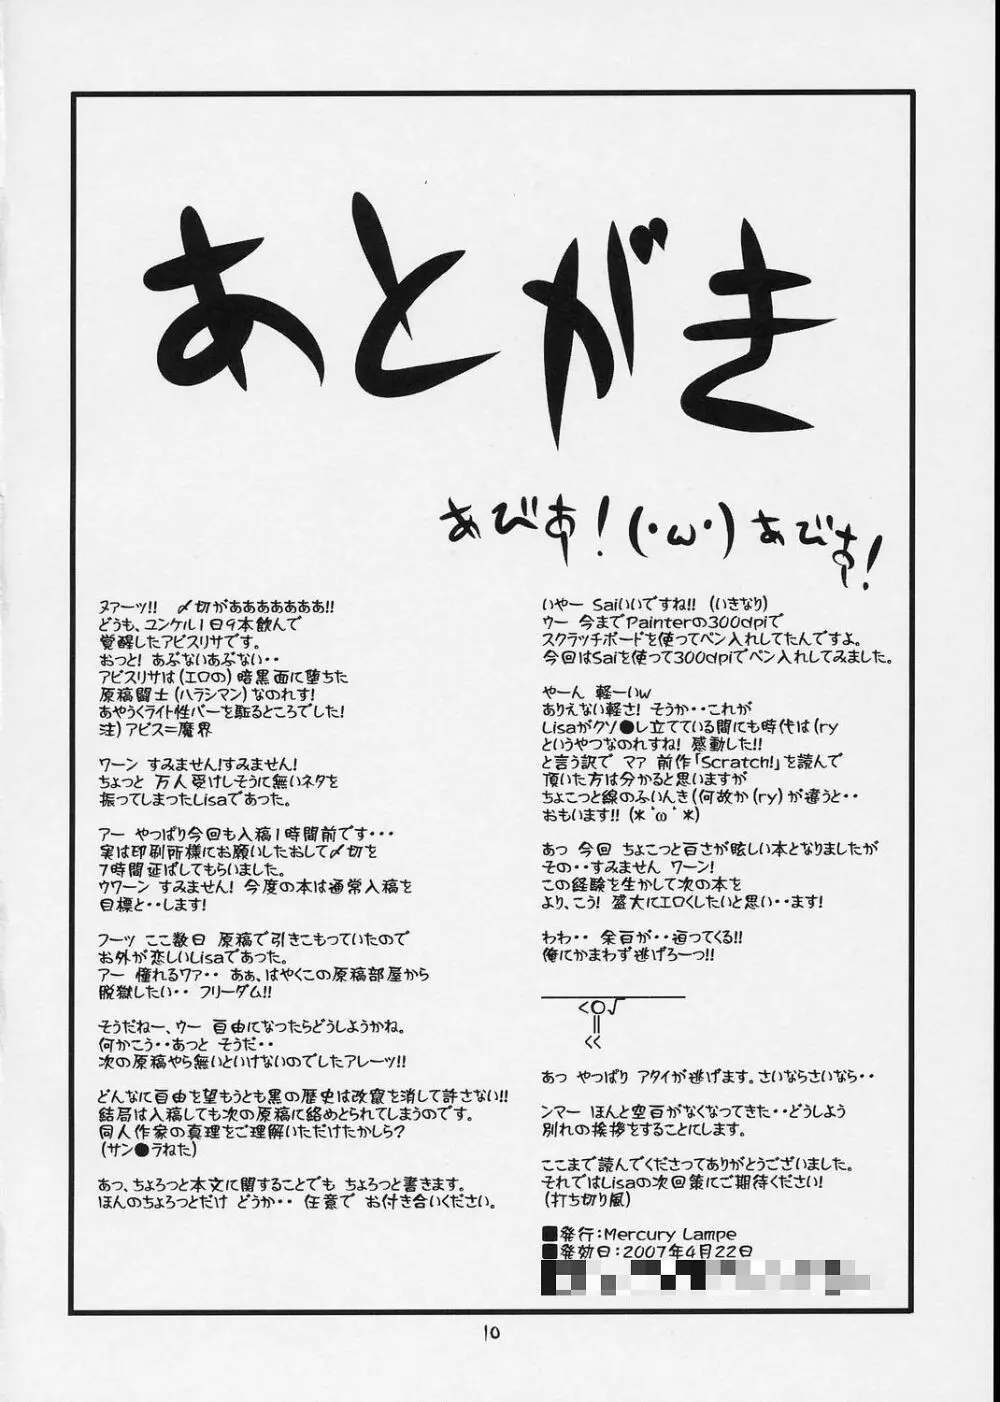 あとがき
あびす!(・ω・)あびす!
ヌァーッ!! 〆切がああああああぁ!!
どうも、ユンケル1日9本飲んで
覚醒したアビスリサです。
おっと! あぶないあぶない・・
アビスリサは(エロの)暗黒面に堕ちた
原稿闘士(ハラシマン)なのれす!
あやうくライト性バーを駈るところでした!
注)アビス=魔界
ワーン すみません!すみません!
ちょっと 万人受けしそうに無いネタを
振ってしまったLisaであった。
アー やっぱり今回も入稿1時間前です・・・
実は印刷所様にお願いしたおして〆切を
7時間延ばしてもらいました。
ウワーン すみません! 今度の本は通常入稿を
目標と・・します!
フーッ ここ数日 原稿で引きこもっていたので
お外が恋しいLisaであった。
アー 憧れるワァ・・ あぁ、はやくこの原稿部屋から
脱獄したい・・ フリーダム!!
そうだねー、ウー 自由になったらどうしようかね。
何かこう・・あっと そうだ・・
次の原稿やら無いといけないのでしたアレーッ!!
どんなに自由を望もうとも黒の歴史は改竄を消して許さない!!
結局は入稿しても次の原稿に絡めとられてしまうのです。
同人作家の真理をご理解いただけたかしら?
(サン●ラねた)
あっ、ちょろっと本文に関することでも ちょろっと書きます。
ほんのちょろっとだけ どうか・・ 任意で お付き合いください。
いやー Saiいいですね!! (いきなり)
ウー 今までPainterの300dpiで
スクラッチボードを使ってペン入れしてたんですよ。
今回はSaiを使って300dpiでペン入れしてみました。
やーん 軽ーいw
ありえない軽さ! そうか・・これが
Lisaがクソ●レ立てている間にも時代は(ry
というやつなのれすね! 感動した!!
と言う訳で マァ 前作「Scratch!」を読んで
頂いた方は分かると思いますが
ちょこっと線のふいんき(何故か(ry)が違うと・・
おもいます!! (*゜ω゜*)
あっ 今回 ちょこっと白さが眩しい本となりましたが
その・・すみません ワーン!
この経験を生かして次の本を
より、こう! 盛大にエロくしたいと思い・・ます!
わわ・・ 余白が・・迫ってくる!!
俺にかまわず逃げろーっ!!
<○√
‖
くく
あっ やっぱり アタイが逃げます。さいならさいなら・・
ンマー ほんと空白がなくなってきた・・どうしよう
別れの挨拶をすることにします。
ここまで読んでくださってありがとうございました。
それではLisaの次回策にご期待ください!
(打ち切り風)
■発行:Mercury Lampe
■発効日:2007年4月22日
10